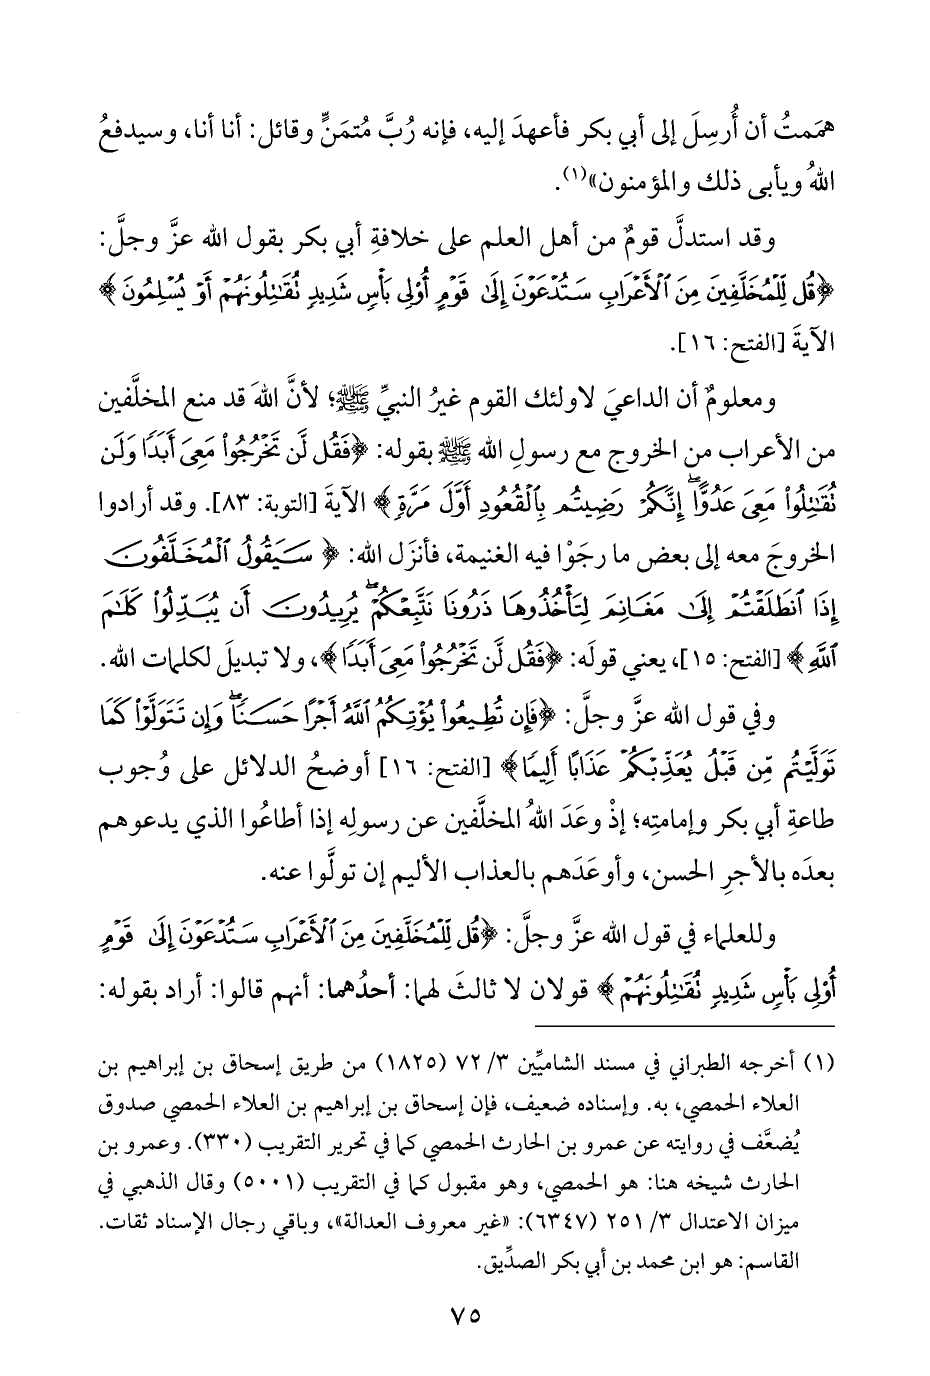 هممتُ أن أُرسِلَ إلى أبي بكر فأعهدَ إليه، فإنه رُبَّ مُتمَنٍّ وقائل: أنا أنا، وسيدفعُ
اللهُ ويأبى ذلك والمؤمنون»(١).
وقد استدلَّ قومٌ من أهل العلم على خلافةِ أبي بكر بقول الله عزَّ وجلَّ:
﴿قُل لِّلْمُخَلَّفِينَ مِنَ ٱلْأَعْرَابِ سَتُدْعَوْنَ إِلَىٰ قَوْمٍ أُوْلِى بَأْسٍ شَدِيدٍ تُقَٰتِلُونَهُمْ أَوْ يُسْلِمُونَ﴾
الآيةَ [الفتح: ١٦].
ومعلومٌ أن الداعيَ لاولئك القوم غيرُ النبيِّ ﷺ؛ لأنَّ اللهَ قد منع المخلَّفين
من الأعراب من الخروج مع رسولِ الله ﷺ بقوله: ﴿فَقُل لَّن تَخْرُجُوا۟ مَعِىَ أَبَدًا وَلَن
تُقَٰتِلُوا۟ مَعِىَ عَدُوًّا ۖ إِنَّكُمْ رَضِيتُم بِٱلْقُعُودِ أَوَّلَ مَرَّةٍ﴾ الآيةَ [التوبة: ٨٣]. وقد أرادوا
الخروجَ معه إلى بعض ما رجَوْا فيه الغنيمة، فأنزَل الله: ﴿سَيَقُولُ ٱلْمُخَلَّفُونَ
إِذَا ٱنطَلَقْتُمْ إِلَىٰ مَغَانِمَ لِتَأْخُذُوهَا ذَرُونَا نَتَّبِعْكُمْ ۖ يُرِيدُونَ أَن يُبَدِّلُوا۟ كَلَٰمَ
ٱللَّهِ﴾ [الفتح: ١٥]، يعني قولَه: ﴿فَقُل لَّن تَخْرُجُوا۟ مَعِىَ أَبَدًا﴾، ولا تبديلَ لكلمات الله.
وفي قول الله عزَّ وجلَّ: ﴿فَإِن تُطِيعُوا۟ يُؤْتِكُمُ ٱللَّهُ أَجْرًا حَسَنًا ۖ وَإِن تَتَوَلَّوْا۟ كَمَا
تَوَلَّيْتُم مِّن قَبْلُ يُعَذِّبْكُمْ عَذَابًا أَلِيمًا﴾ [الفتح: ١٦] أوضحُ الدلائل على وُجوب
طاعةِ أبي بكر وإمامتِه؛ إذْ وعَدَ اللهُ المخلَّفين عن رسولِه إذا أطاعُوا الذي يدعوهم
بعدَه بالأجرِ الحسن، وأوعَدَهم بالعذاب الأليم إن تولَّوا عنه.
وللعلماء في قول الله عزَّ وجلَّ: ﴿قُل لِّلْمُخَلَّفِينَ مِنَ ٱلْأَعْرَابِ سَتُدْعَوْنَ إِلَىٰ قَوْمٍ
أُوْلِى بَأْسٍ شَدِيدٍ تُقَٰتِلُونَهُمْ﴾ قولان لا ثالثَ لهما: أحدُهما: أنهم قالوا: أراد بقوله:
(١) أخرجه الطبراني في مسند الشاميِّين ٣/ ٧٢ (١٨٢٥) من طريق إسحاق بن إبراهيم بن
العلاء الحمصي، به. وإسناده ضعيف، فإن إسحاق بن إبراهيم بن العلاء الحمصي صدوق
يُضعَّف في روايته عن عمرو بن الحارث الحمصي كما في تحرير التقريب (٣٣٠). وعمرو بن
الحارث شيخه هنا: هو الحمصي، وهو مقبول كما في التقريب (٥٠٠١) وقال الذهبي في
ميزان الاعتدال ٣/ ٢٥١ (٦٣٤٧): «غير معروف العدالة»، وباقي رجال الإسناد ثقات.
القاسم: هو ابن محمد بن أبي بكر الصدِّيق.
٧٥